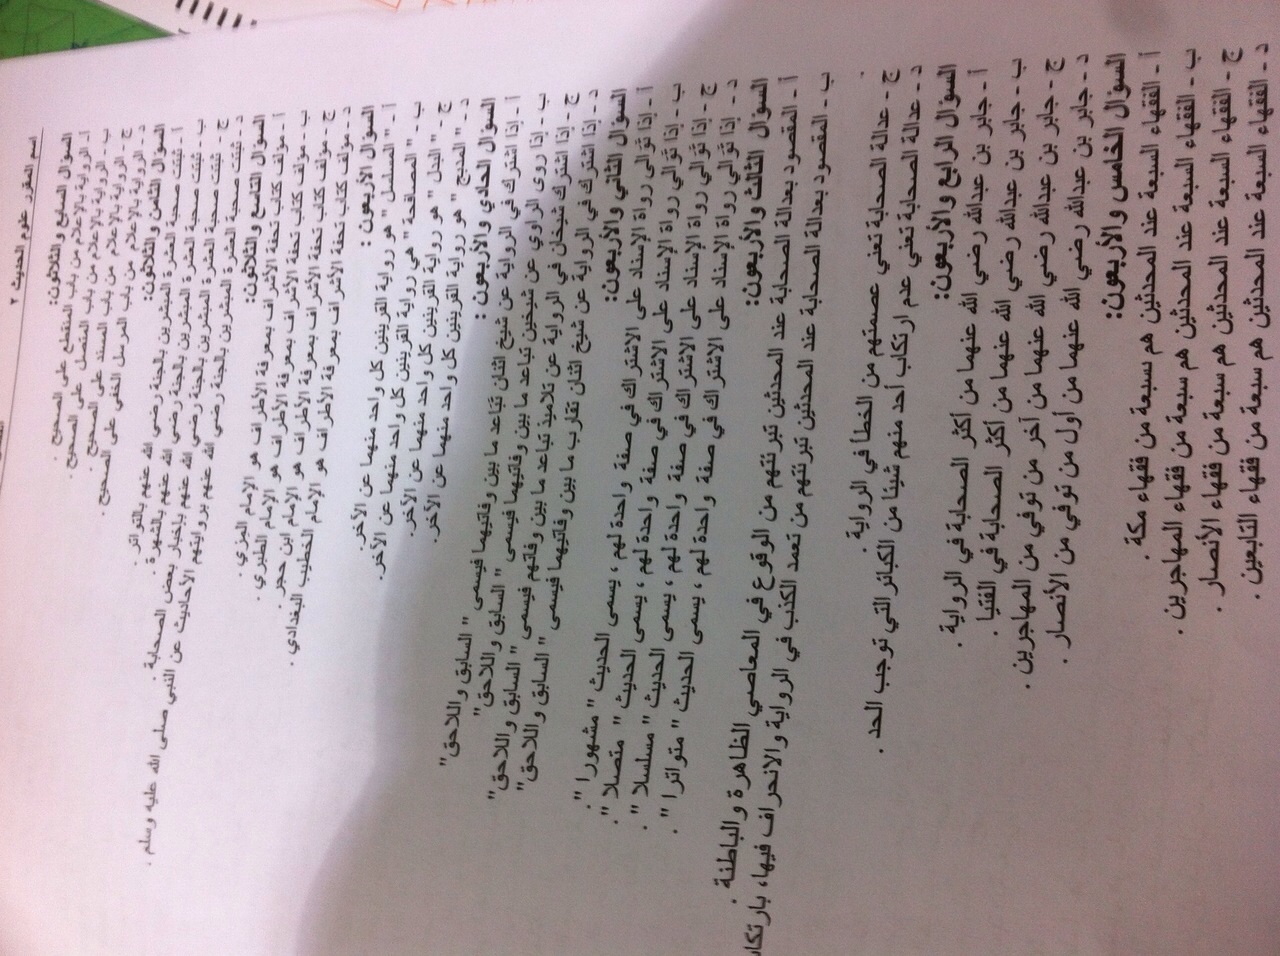 اسم المقرر علوم الحديث ٢
السؤال السابع والثلاثون:
أ- الرواية بالإعلام من باب المنقطع على الصحيح .
ب- الرواية بالإعلام من باب المتصل على الصحيح .
ج- الرواية بالإعلام من باب المسند على الصحيح .
د- الرواية بالإعلام من باب المرسل الخفي على الصحيح .
السؤال الثامن والثلاثون:
أ - ثبتت صحبة العشرة المبشرين بالجنة رضي الله عنهم بالتواتر .
ب - ثبتت صحبة العشرة المبشرين بالجنة رضي الله عنهم بالشهرة .
ج - ثبتت صحبة العشرة المبشرين بالجنة رضي الله عنهم بإخبار بعض الصحابة .
د - ثبتت صحبة العشرة المبشرين بالجنة رضي الله عنهم بروايتهم الأحاديث عن النبي صلى الله عليه وسلم .
السؤال التاسع والثلاثون:
أ - مؤلف كتاب تحفة الأشراف بمعرفة الأطراف هو الإمام المزي .
ب - مؤلف كتاب تحفة الأشراف بمعرفة الأطراف هو الإمام الطبري .
ج - مؤلف كتاب تحفة الأشراف بمعرفة الأطراف هو الإمام ابن حجر .
د - مؤلف كتاب تحفة الأشراف بمعرفة الأطراف هو الإمام الخطيب البغدادي .
السؤال الأربعون :
أ - " المسلسل " هو رواية القرينين كل واحد منهما عن الآخر.
ب - " المصافحة " هي رواية القرينين كل واحد منهما عن الآخر.
ج - " البدل " هو رواية القرينين كل واحد منهما عن الآخر.
د - " المدبج " هو رواية القرينين كل واحد منهما عن الآخر.
السؤال الحادي والأربعون :
أ - إذا اشترك في الرواية عن شيخ اثنان تباعد ما بين وفاتيهما فيسمى " السابق واللاحق"
ب - إذا روى الراوي عن شيخين تباعد ما بين وفاتيهما فيسمى " السابق واللاحق"
ج - إذا اشترك شيخان في الرواية عن تلاميذ تباعد ما بين وفاتهم فيسمى " السابق واللاحق"
د - إذا اشترك في الرواية عن شيخ اثنان تقارب ما بين وفاتيهما فيسمى " السابق واللاحق"
السؤال الثاني والأربعون:
أ - إذا توالى رواة الإسناد على الاشتراك في صفة واحدة لهم ، يسمى الحديث " مشهورا ".
ب - إذا توالى رواة الإسناد على الاشتراك في صفة واحدة لهم ، يسمى الحديث " متصلا ".
ج - إذا توالى رواة الإسناد على الاشتراك في صفة واحدة لهم ، يسمى الحديث " مسلسلا ".
د - إذا توالى رواة الإسناد على الاشتراك في صفة واحدة لهم ، يسمى الحديث " متواترا ".
السؤال الثالث والأربعون:
أ - المقصود بعدالة الصحابة عند المحدثين تبرئتهم من الوقوع في المعاصي الظاهرة والباطنة .
ب - المقصود بعدالة الصحابة عند المحدثين تبرئتهم من تعمد الكذب في الرواية والانحراف فيها، بارتكاب
ج - عدالة الصحابة تعني عصمتهم من الخطأ في الرواية .
د - عدالة الصحابة تعني عدم ارتكاب أحد منهم شيئا من الكبائر التي توجب الحد .
السؤال الرابع والأربعون:
أ - جابر بن عبدالله رضي الله عنهما من أكثر الصحابة في الرواية .
ب - جابر بن عبدالله رضي الله عنهما من أكثر الصحابة في الفتيا .
ج - جابر بن عبدالله رضي الله عنهما من آخر من توفي من المهاجرين .
د - جابر بن عبدالله رضي الله عنهما من أول من توفي من الأنصار .
السؤال الخامس والأربعون:
أ - الفقهاء السبعة عند المحدثين هم سبعة من فقهاء مكة .
ب - الفقهاء السبعة عند المحدثين هم سبعة من فقهاء المهاجرين .
ج - الفقهاء السبعة عند المحدثين هم سبعة من فقهاء الأنصار .
د - الفقهاء السبعة عند المحدثين هم سبعة من فقهاء التابعين .